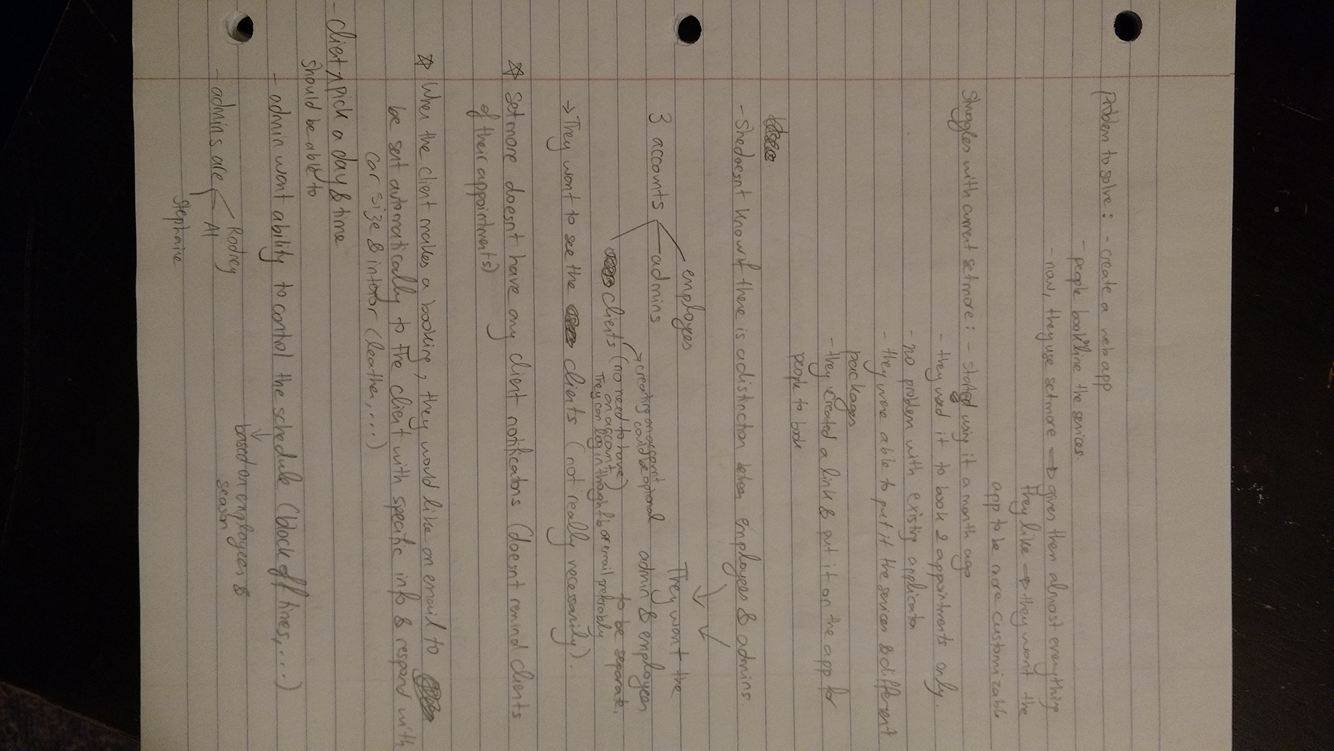 Problem to solve : - create a web app
- people book/line the services
- now, they use setmore → gives them almost everything
they like → they want the
app to be more customizable
Struggles with current setmore : - started using it a month ago
- they used it to book 2 appointments only.
- no problem with existing application
- they were able to put it the services & different
packages
- they created a link & put it on the app for
people to book
- She doesn't know if there is a distinction between employees & admins
3 accounts
employees
admins
clients (no need to have
on account)
They can log in through fb or email probably
→ creating an account
could be optional
They want the
admin & employees
to be separate.
→ They want to see the clients (not really necessarily).
☆ Setmore doesn't have any client notifications (doesn't remind clients
of their appointments)
☆ When the client makes a booking, they would like an email to
be sent automatically to the client with specific info & respond with
car size & interior (leather, ....)
- client pick a day & time
should be able to
- admin want ability to control the schedule (block off times, ...)
based on employees &
season
- admins are
Rodney
Al
Stephanie